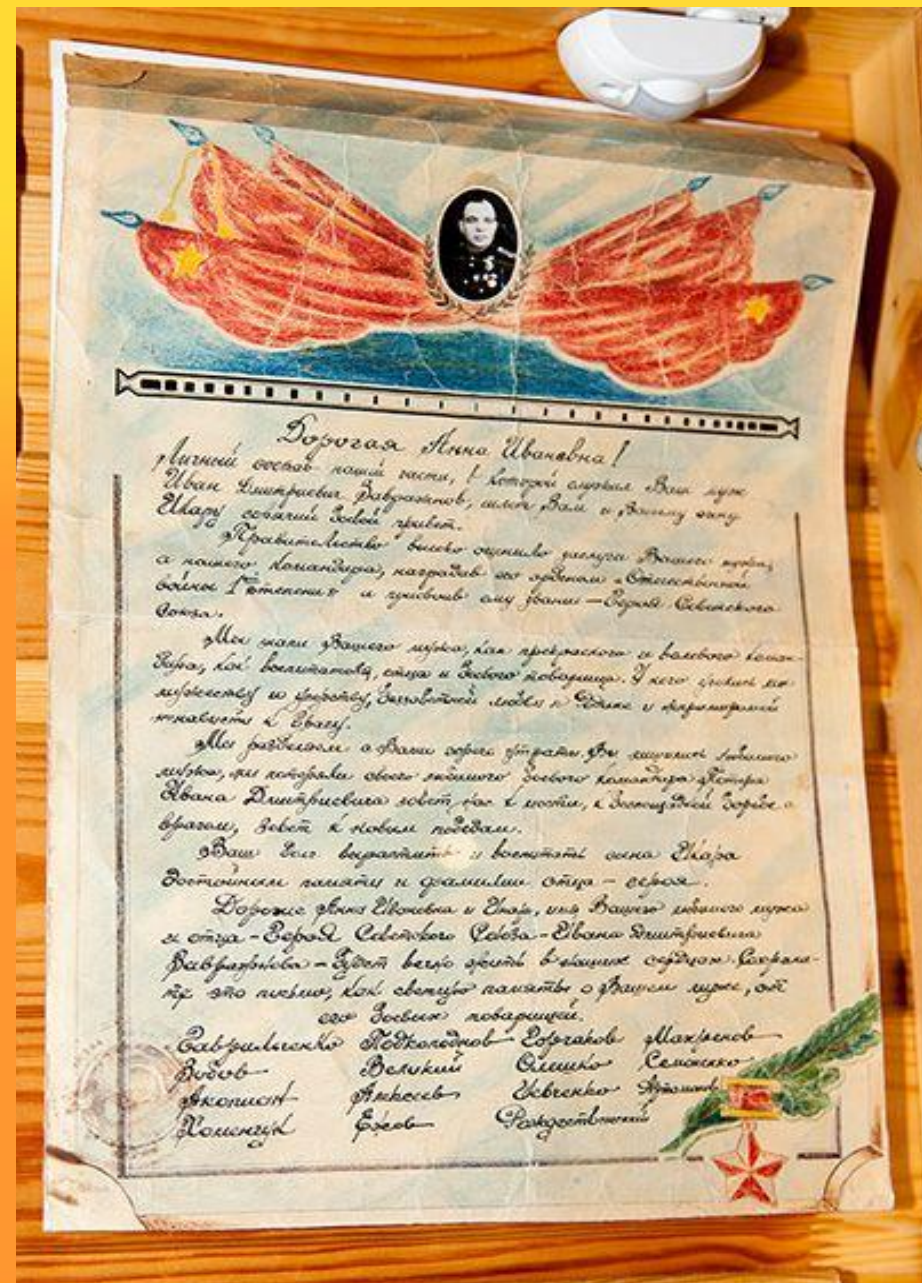 Дорогая Анна Ивановна!
Личный состав нашей части, в которой служил Ваш муж
Иван Дмитриевич Завражнов, шлет Вам и Вашему сыну
Икару горячий боевой привет.
Правительство высоко оценило заслуги Вашего мужа,
а нашего командира, наградив его орденом „Отечественной
войны 1ой степени" и присвоив ему звание – Героя Советского
Союза.
Мы знали Вашего мужа, как прекрасного и волевого коман-
дира, как воспитателя, отца и боевого товарища. У него учились мы
мужеству и упорству, беззаветной любви к Родине и непримиримой
ненависти к врагу.
Мы разделяем с Вами горечь утраты. Вы лишились любимого
мужа, мы потеряли своего любимого боевого командира. Потеря
Ивана Дмитриевича зовет нас к мести, к беспощадной борьбе с
врагом, зовет к новым победам.
Ваш долг вырастить и воспитать сына Икара
достойным памяти и фамилии отца – героя.
Дорогие Анна Ивановна и Икар, имя Вашего любимого мужа
и отца – Героя Советского Союза – Ивана Дмитриевича
Завражнова – будет вечно жить в наших сердцах. Сохрани-
те это письмо, как светлую память о Вашем муже, от
его боевых товарищей.
Гаврильченко Подколоднов Горчаков
Зобов Великий Олишко Семененко
Акопиан Алексеев Шевченко
Хоменчук Ежов Рождественский